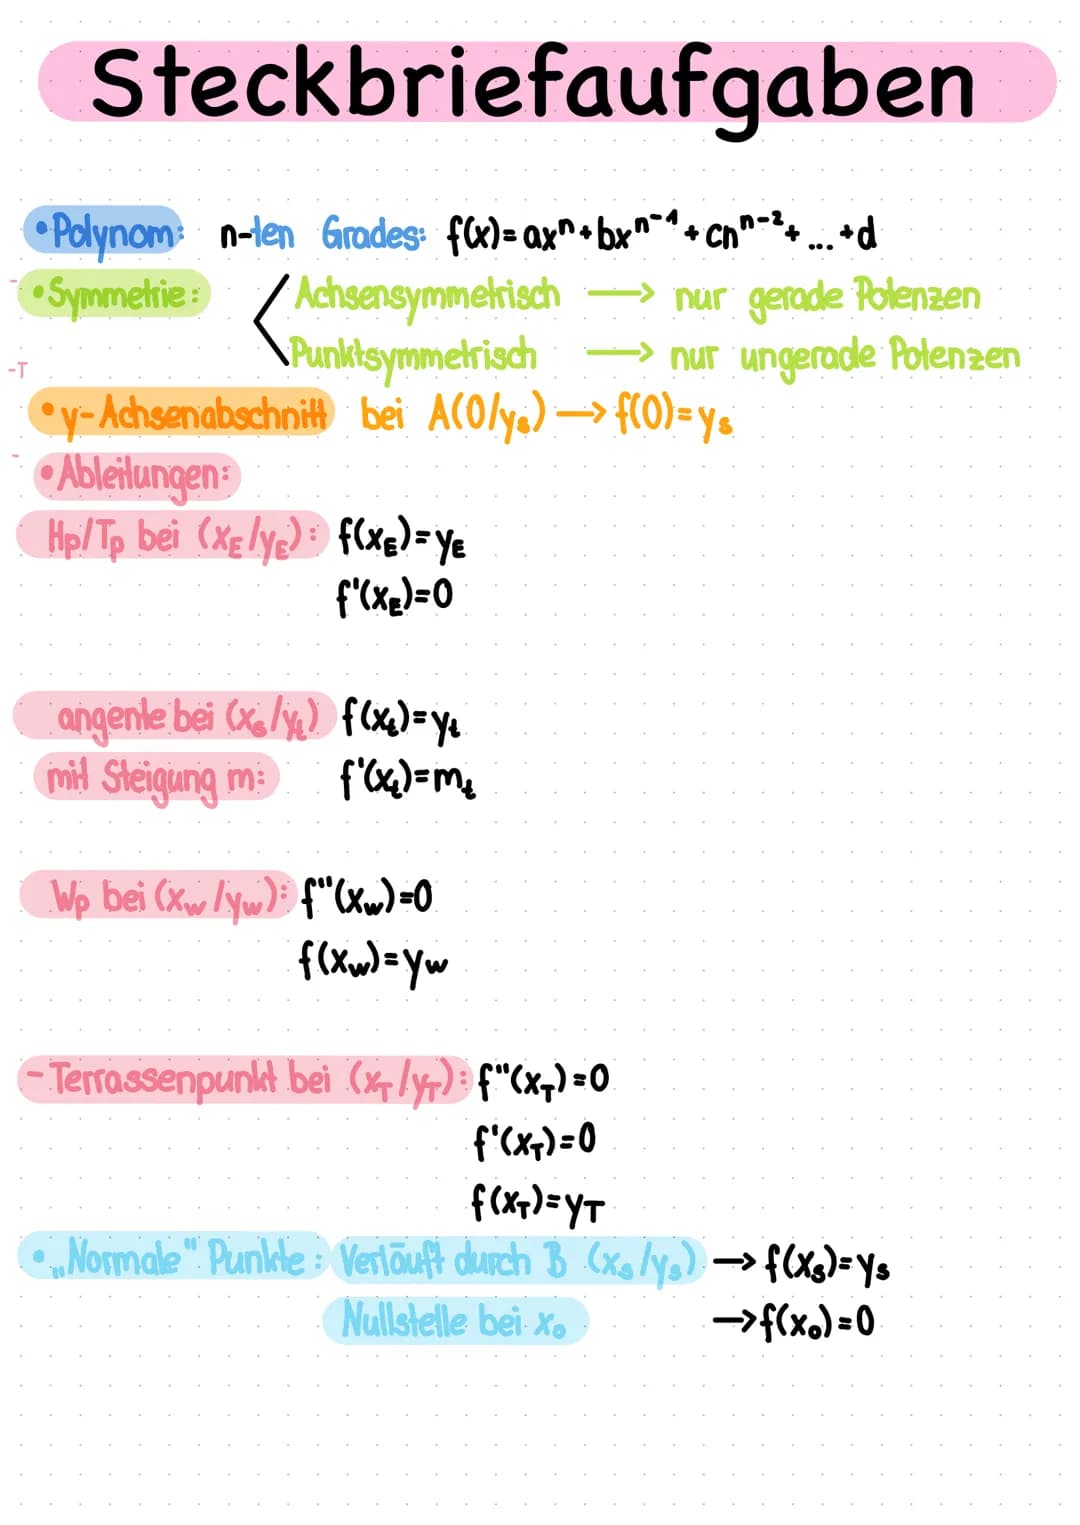 Steckbriefaufgaben
• Polynom: n-ten Grades: f(x)=axⁿ+bxⁿ⁻¹+cnⁿ⁻²+...+d
• Symmetrie: Achsensymmetrisch → nur gerade Potenzen
Punktsymmetrisch → nur ungerade Potenzen
-T
• y-Achsenabschnitt bei A(0/yₛ) → f(0)=yₛ
• Ableitungen:
Hp/Tp bei (x_E/y_E): f(x_E)=y_E
f'(x_E)=0
angente bei (xₛ/yₜ) f(xₜ)=yₜ
mit Steigung m: f'(xₜ)=mₜ
Wp bei (x_w/y_w): f"(x_w)=0
f(x_w)=y_w
- Terrassenpunkt bei (x_T/y_T): f"(x_T)=0
f'(x_T)=0
f(x_T)=y_T
• „Normale" Punkte: Verläuft durch B (xₛ/yₛ) → f(xₛ)=yₛ
Nullstelle bei x₀ → f(x₀)=0